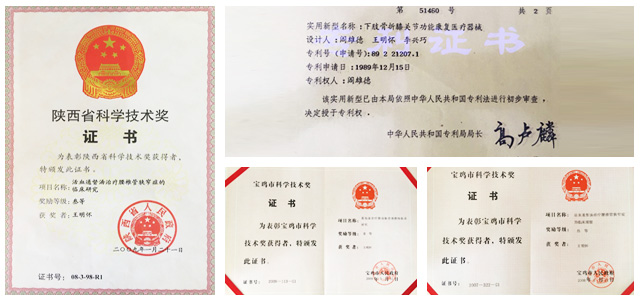 陕西省科学技术奖
证 书
为表彰陕西省科学技术奖获得者，
特颁发此证书。
项目名称：活血通督汤治疗腰椎管狭窄症的
临床研究
奖励等级：叁等
获 奖 者：王明怀
陕西省人民政府
二〇〇九年一月二十一日
证书号：08-3-98-R1
第 51460 号
共 2 页
实用新型名称：下肢骨折膝关节功能康复医疗器械
设计人：阎雄德 王明怀 李兴巧
专利号(申请号)：89 2 21207.1
专利申请日：1989年12月15日
专利权人：阎雄德
该实用新型已由本局依照中华人民共和国专利法进行初步审查，
决定授于专利权。
中华人民共和国专利局局长 高卢麟
宝鸡市科学技术奖
证 书
为表彰宝鸡市科学
技术奖获得者，特颁发
此证书。
项目名称：
奖励等级：
获 奖 者：
宝鸡市人民政府
证书号：
宝鸡市科学技术奖
证 书
为表彰宝鸡市科学
技术奖获得者，特颁发
此证书。
项目名称：
奖励等级：
获 奖 者：
宝鸡市人民政府
证书号：